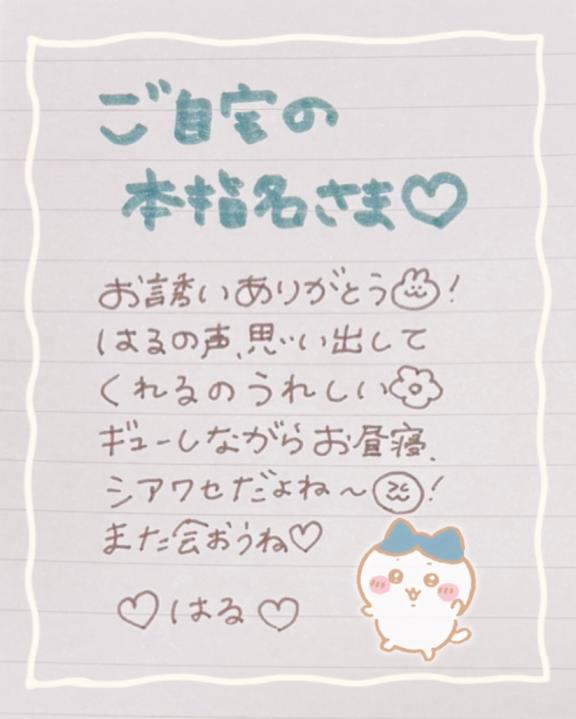 ご自宅の
本指名さま♡
お誘いありがとう!
はるの声、思い出して
くれるのうれしい
ギューしながらお昼寝、
シアワセだよね〜!
また会おうね♡
♡はる♡